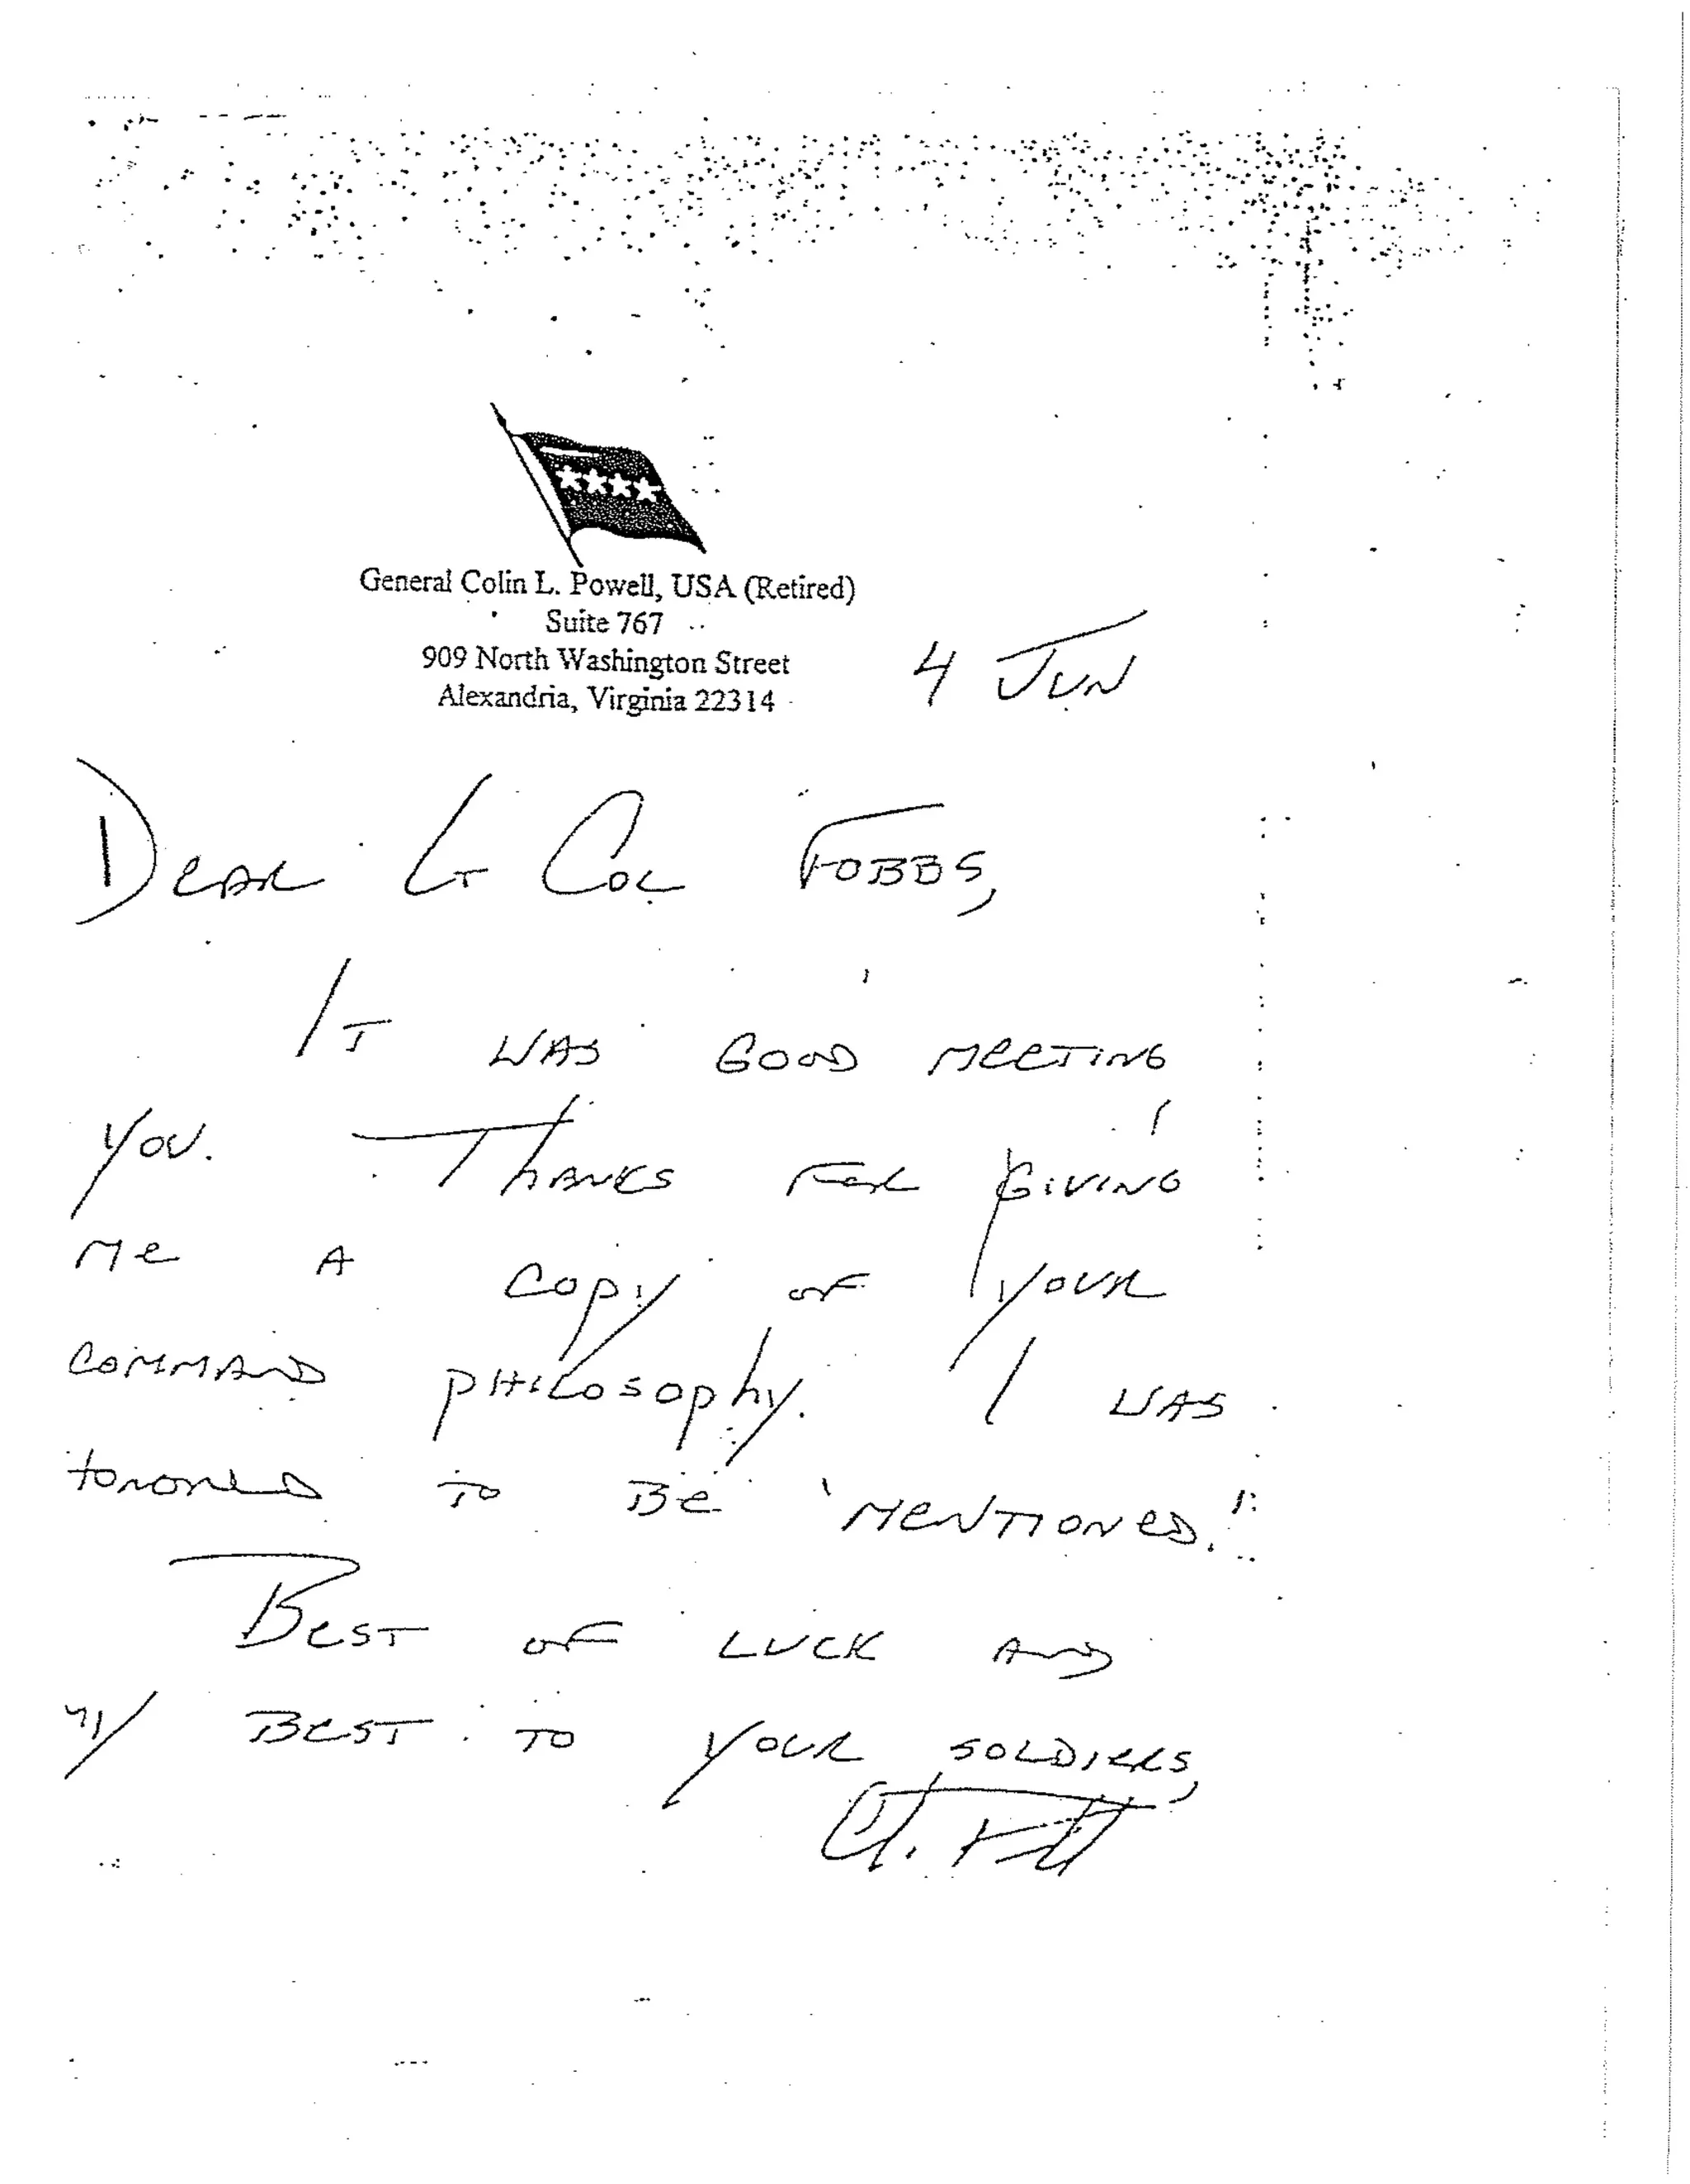 General Colin L. Powell, USA (Retired)
Suite 767
909 North Washington Street
Alexandria, Virginia 22314
4 JUN
DEAR LT COL FOBBS,
IT WAS GOOD MEETING
YOU. THANKS FOR GIVING
ME A COPY OF YOUR
COMMAND PHILOSOPHY. I WAS
HONORED TO BE "MENTIONED."
BEST OF LUCK AND
MY BEST TO YOUR SOLDIERS,